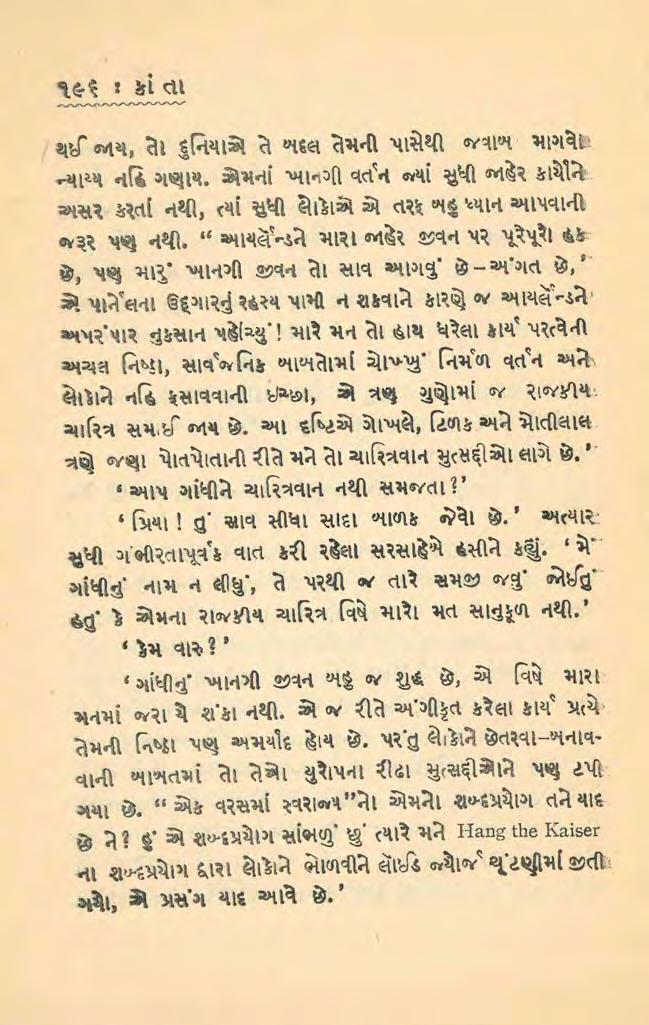 ૧૯૬ : કાંતા
થઈ જાય, તો દુનિયાએ તે બદલ તેમની પાસેથી જવાબ માગવો
ન્યાય્ય નહિ ગણાય. એમનાં ખાનગી વર્તન જ્યાં સુધી જાહેર કાર્યોને
અસર કરતાં નથી, ત્યાં સુધી લોકોએ એ તરફ બહુ ધ્યાન આપવાની
જરૂર પણ નથી. “ આયર્લૅન્ડને મારા જાહેર જીવન પર પૂરેપૂરો હક
છે, પણ મારું ખાનગી જીવન તો સાવ આગવું છે – અંગત છે,”
એ પાર્નેલના ઉદ્ગારનું રહસ્ય પામી ન શકવાને કારણે જ આયર્લૅન્ડને
અપરંપાર નુકસાન પહોંચ્યું ! મારે મન તો હાથ ધરેલા કાર્ય પરત્વેની
અચલ નિષ્ઠા, સાર્વજનિક બાબતોમાં ચોખ્ખું નિર્મળ વર્તન અને
લોકોને નહિ ફસાવવાની ઇચ્છા, એ ત્રણ ગુણોમાં જ રાજકીય
ચારિત્ર સમાઈ જાય છે. આ દૃષ્ટિએ ગોખલે, ટિળક અને મોતીલાલ
ત્રણે જણા પોતપોતાની રીતે મને તો ચારિત્રવાન મુત્સદ્દીઓ લાગે છે.’
‘ આપ ગાંધીને ચારિત્રવાન નથી સમજતા ?’
‘ પ્રિયા ! તું સાવ સીધા સાદા બાળક જેવો છે.’ અત્યાર
સુધી ગંભીરતાપૂર્વક વાત કરી રહેલા સરસાહેબે હસીને કહ્યું. ‘ મેં
ગાંધીનું નામ ન લીધું, તે પરથી જ તારે સમજી જવું જોઈતું
હતું કે એમના રાજકીય ચારિત્ર વિષે મારો મત સાનુકૂળ નથી.’
‘ કેમ વારુ ?’
‘ ગાંધીનું ખાનગી જીવન બહુ જ શુદ્ધ છે, એ વિષે મારા
મનમાં જરા યે શંકા નથી. એ જ રીતે અંગીકૃત કરેલા કાર્ય પ્રત્યે
તેમની નિષ્ઠા પણ અમર્યાદ હોય છે. પરંતુ લોકોને છેતરવા–બનાવ-
વાની બાબતમાં તો તેઓ યુરોપના રીઢા મુત્સદ્દીઓને પણ ટપી
ગયા છે. “ એક વરસમાં સ્વરાજ્ય”નો એમનો શબ્દપ્રયોગ તને યાદ
છે ને? હું એ શબ્દપ્રયોગ સાંભળું છું ત્યારે મને Hang the Kaiser
ના શબ્દપ્રયોગ દ્વારા લોકોને ભોળવીને લૉઈડ જ્યોર્જ ચૂંટણીમાં જીતી
ગયો, એ પ્રસંગ યાદ આવે છે.’